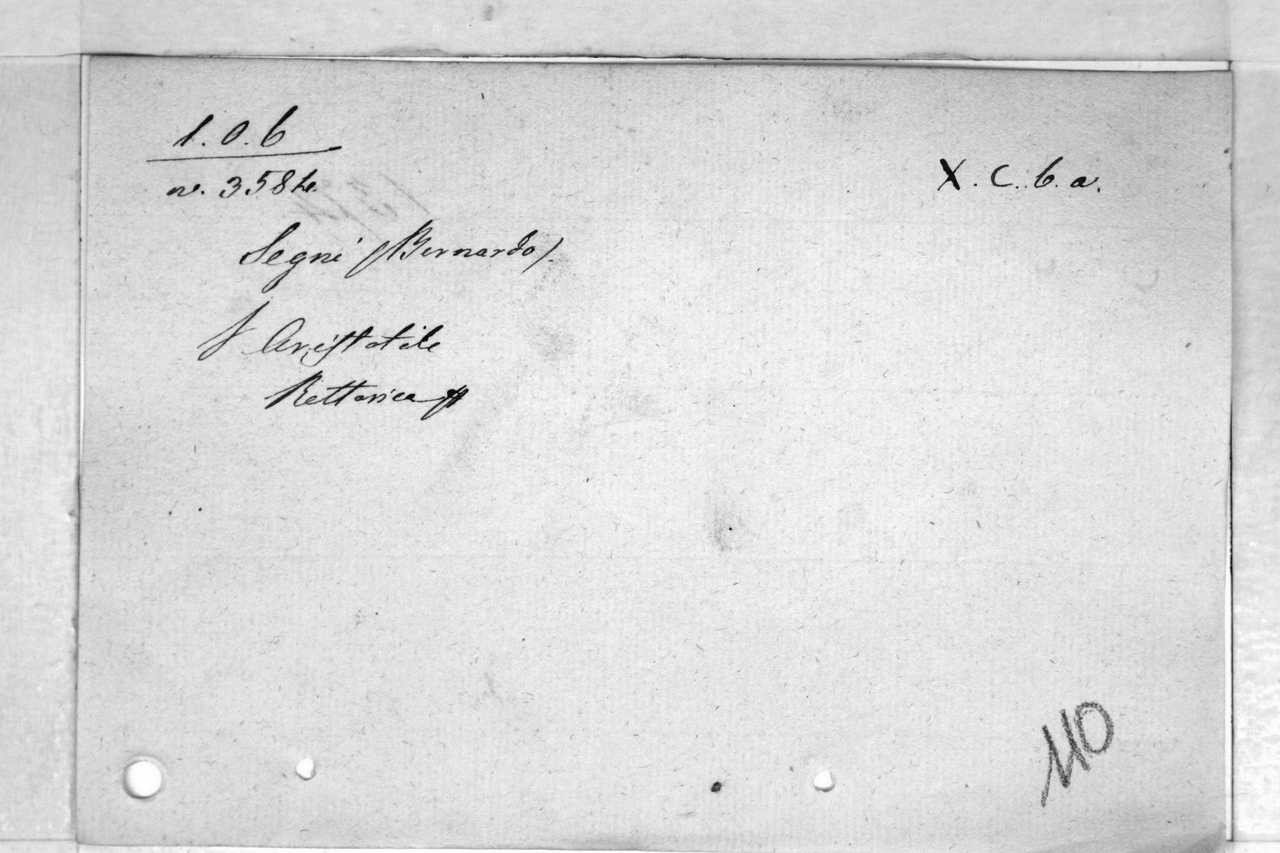 1.0.6
X. C. b. a.
nr. 358
Segni (Bernardo).
Aristotile
Rettorica
110